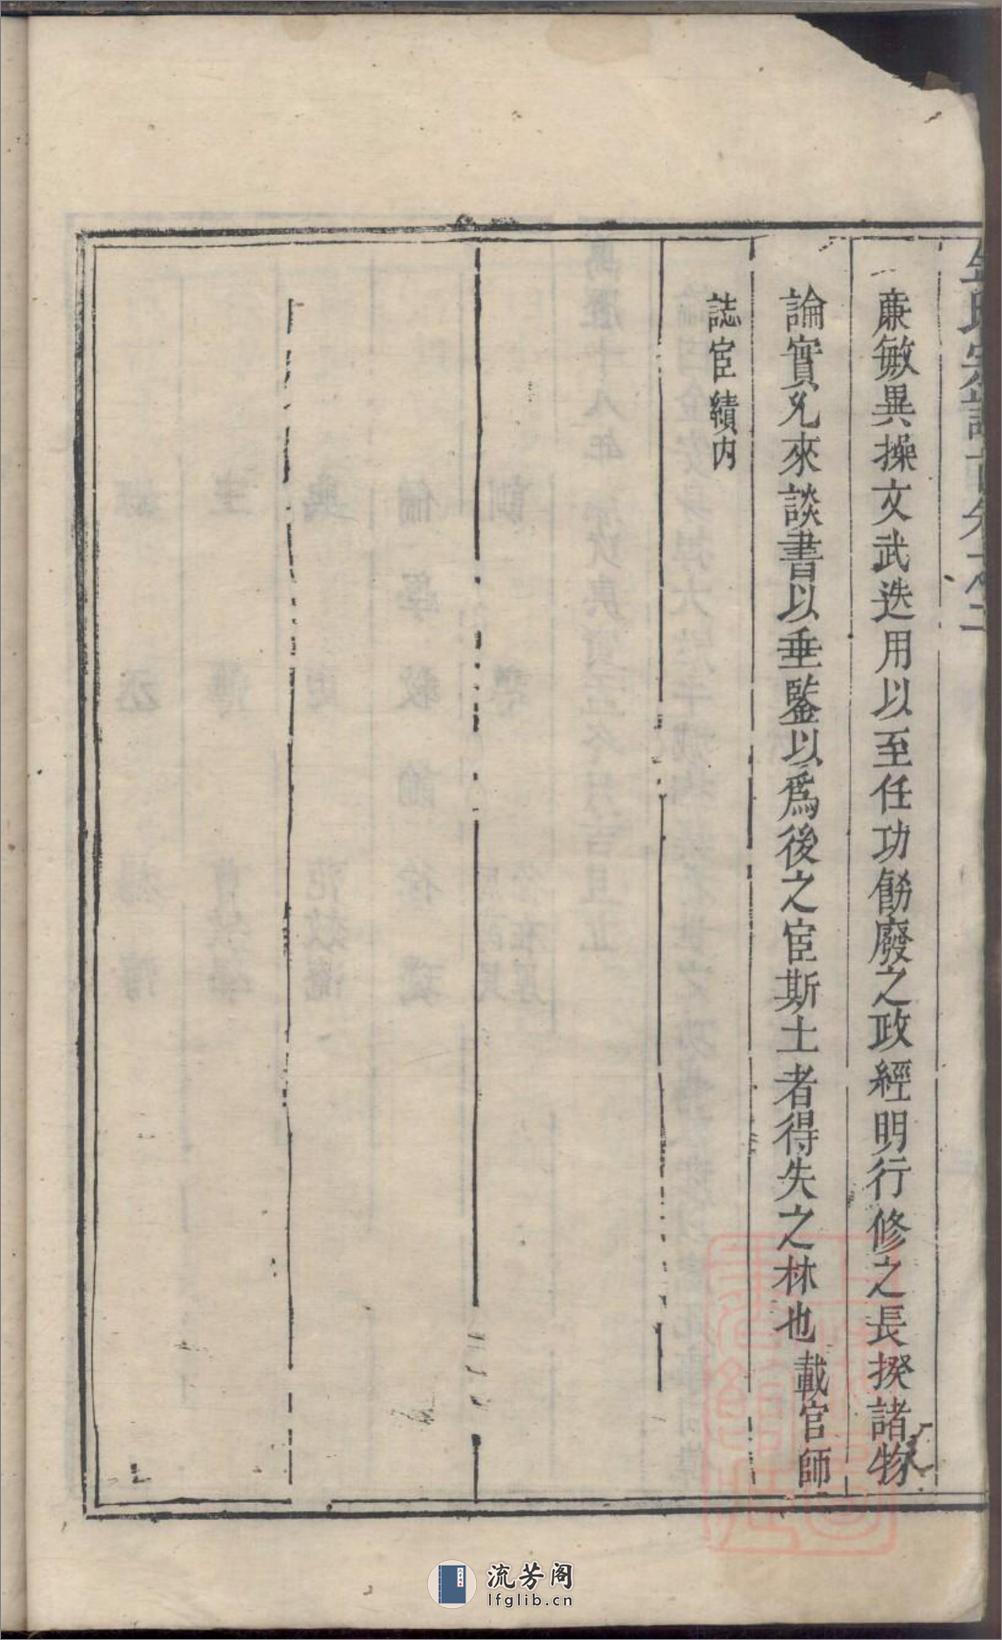 廉敏異操文武迭用以至任功飭廢之政經明行修之長揆諸物
論實允來談書以垂鑒以爲後之宦斯土者得失之林也載官師
誌宦績内
流芳阁
lfglib.cn